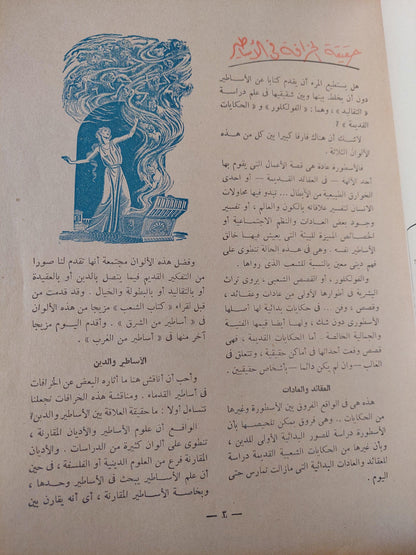 حقيقة الخرافة في الأساطير
هل يستطيع المرء أن يقدم كتابا عن الأساطير
دون أن يخلط بينها وبين شقيقيها فى علم دراسة
« التقاليد » ، وهما : « الفولكلور » و « الحكايات
القديمة » ؟
لاشك أن هناك فارقا كبيرا بين كل من هذه
الألوان الثلاثة .
فالأسطورة عادة هى قصة الأعمال التى يقوم بها
أحد الآلهة — فى العقائد القديمة — أو احدى
الخوارق الطبيعية من الأبطال ... تبدو فيها محاولات
الانسان لتفسير علاقاته بالكون والعالم ، أو تفسير
وجود بعض العادات والنظم الاجتماعية أو
الخصائص المميزة للبيئة التى يعيش فيها خالق
الأساطير نفسه . وهى فى هذه الحالة تنطوى على
فهم دينى معين بالنسبة للشعب الذى رواها .
والفولكلور ، أو القصص الشعبى ، يروى تراث
البشرية فى أطوارها الأولى من عادات وعقائد ،
وقصص ، وفن ... فى حكايات بدائية لها أصلها
الأسطورى دون شك ، ولها أيضا قيمتها الفنية
والجمالية الخالصة . أما الحكايات القديمة ، فهى
قصص وقعت أحداثها فى أماكن حقيقية ، وتتعلق فى
الغالب — وان لم يكن دائما — بأشخاص حقيقيين .
العقائد والعادات
هذه هى فى الواقع الفروق بين الأسطورة وغيرها
من الحكايات .. وهى فروق يمكن تلخيصها بأن
الأسطورة دراسة للصور البدائية الأولى للدين ،
وبأن غيرها من الحكايات الشعبية القديمة دراسة
للعقائد والعادات البدائية التى مازالت تمارس حتى
اليوم .
وفضل هذه الألوان مجتمعة أنها تقدم لنا صورا
من التفكير القديم فيما يتصل بالدين أو بالعقيدة
أو بالتقاليد أو بالبطولة والخيال . وقد قدمت من
قبل لقراء « كتاب الشعب » مزيجا من هذه الألوان
فى « أساطير من الشرق » . وأقدم اليوم مزيجا
آخر منها فى « أساطير من الغرب » .
الأساطير والدين
وأحب أن أناقش هنا ما أثاره البعض عن الخرافات
فى أساطير القدماء . ومناقشة هذه الخرافات تجعلنا
نتساءل أولا : ما حقيقة العلاقة بين الأساطير والدين؟
الواقع أن علوم الأساطير والأديان المقارنة ،
تنطوى على ألوان كثيرة من الدراسات . والأديان
المقارنة فرع من العلوم الدينية أو الفلسفة ، فى حين
أن علم الأساطير يبحث فى الأساطير وحدها ،
وبخاصة الأساطير المقارنة ، أى أنه يقارن بين
— ٢ —